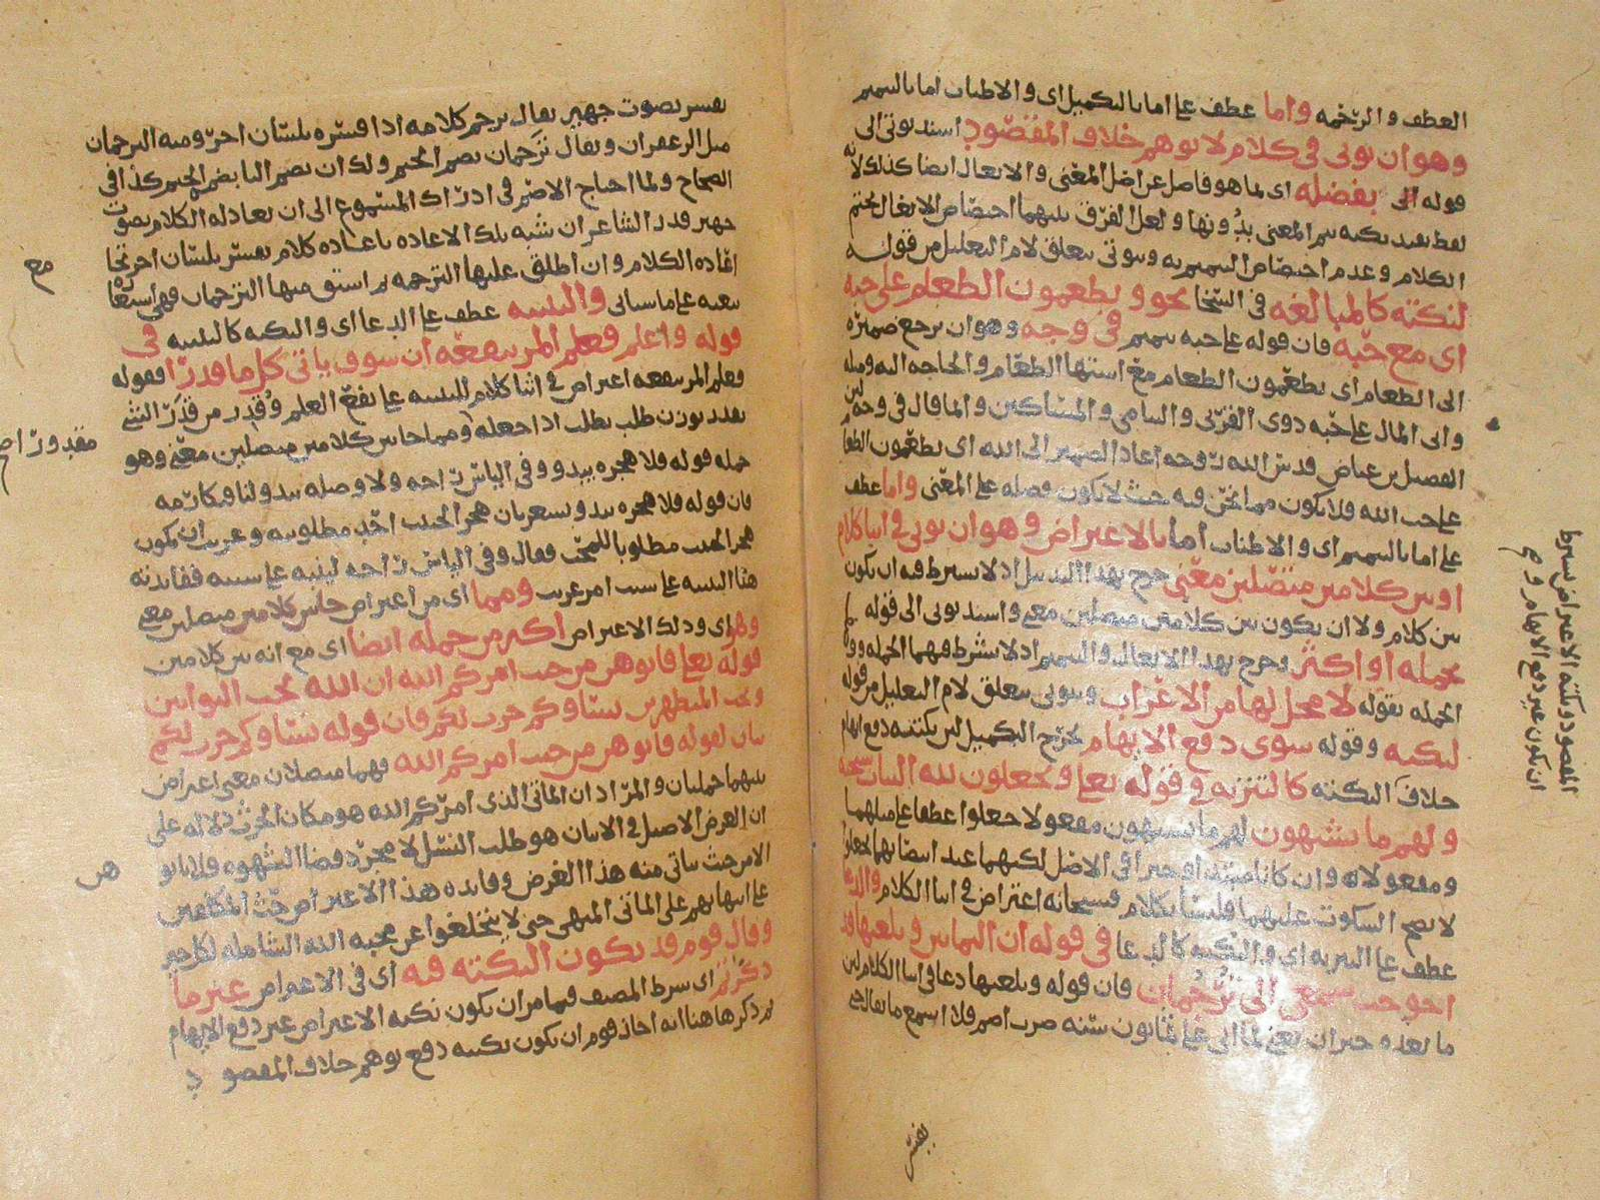 العطف والرحمه واما عطف على اما بالتكميل اى والاطناب اما بالتتميم
وهو ان يوتى فى كلام لا يوهم خلاف المقصود اسند يوتى الى
قوله بفضله اى لما هو فاصل عن اصل المعنى والايغال ايضا كذلك لانه
لفظ يفيد نكته يتم المعنى بدونها ولعل الفرق بينهما اختصاص الايغال بختم
الكلام وعدم اختصاص التتميم به ويوتى يتعلق لام التعليل من قوله
لنكته كالمبالغه فى نحو ويطعمون الطعام على حبه
اى مع حبه فان قوله على حبه تتميم فى وجه وهو ان يرجع ضميره
الى الطعام اى يطعمون الطعام مع اشتها الطعام والحاجه اليه ومثله
واتى المال على حبه ذوى القربى واليتامى والمساكين وانما قال فى وجه لان
الفضيل بن عياض قدس الله روحه اعاد الضمير الى الله اى يطعمون الطعام
على حب الله فلا يكون مما نحن فيه حيث لا يكون فضله على المعنى واما عطف
على اما بالتتميم اى والاطناب اما بالاعتراض وهو ان يوتى فى اثنا كلام
او بين كلامين متصلين معنى خرج بهذا التذييل اذ لا يشترط فيه ان يكون
بين كلام ولا ان يكون بين كلامين متصلين معنى واسند يوتى الى قوله
بجمله او اكثر وخرج بهذا الايغال والتتميم اذ لا يشترط فيهما الجمله
الجمله بقوله لا محل لها من الاعراب ويوتى يتعلق لام التعليل من قوله
لنكته وقوله سوى دفع الايهام يخرج التكميل لان نكتته دفع ايهام
خلاف النكته كالتنزيه فى قوله تعالى ويجعلون لله البنات سبحنه
ولهم ما يشتهون لهم ما يشتهون مفعولا جعلوا عطفا على مثلهما
ومفعولاه وان كانا مبتدا وخبرا فى الاصل لكنهما عند انتصابهما
لا يصح السكوت عليهما فليسا بكلام فسبحانه اعتراض فى اثنا الكلام والدعا
عطف على التنزيه اى والنكته كالدعا فى قوله ان الثمانين وبلغتها قد
احوجت سمعى الى ترجمان فان قوله وبلغتها دعا فى اثنا الكلام لان
ما بعده خبر ان يعنى لما اتى على ثمانون سنه صرت اصم فلا اسمع ما يقال حتى
يفسر
المقصود ونكته الاعتراض بشرط
ان تكون غير دفع الايهام
يفسر بصوت جهير يقال ترجم كلامه اذا فسره بلسان اخر ومنه الترجمان
مثل الزعفران ويقال ترجمان بضم الجيم ولك ان تضم التا بضم الجيم كذا فى
الصحاح ولما احتاج الاصم فى ادراك المسموع الى ان يعاد له الكلام بصوت
جهير قدر الشاعر ان شبه تلك الاعاده باعاده كلام يفسر بلسان اخر
اعاده الكلام وان اطلق عليها الترجمه ثم اشتق منها الترجمان فهى استعاره
تبعيه على ما سياتى والتنبيه عطف على الدعا اى والنكته كالتنبيه فى
قوله واعلم فعلم المر ينفعه ان سوف ياتى كل ما قدرا فقوله
فعلم المر ينفعه اعتراض فى اثنا كلام للتنبيه على نفع العلم وقدر من قدرت الشئ
بقدر بوزن طلب يطلب اذا جعله ومما جا بين كلامين متصلين معنى وهو
جمله قوله فلا هجره يبدو وفى الياس راحه ولا وصله يبدو لنا فنكارمه
فان قوله فلا هجره يبدو يشعر بان هجر الحبيب احد مطلوبيه وغريب ان يكون
هجر الحبيب مطلوبا للمحب فقال وفى الياس راحه لينبه على سببه ففايدته
هنا التنبيه على سبب امر غريب ومما اى من اعتراض جا بين كلامين متصلين معنى
وهو اى وذلك الاعتراض اكثر من جمله ايضا اى مع انه بين كلامين
قوله تعالى فاتوهن من حيث امركم الله ان الله يحب التوابين
ويحب المتطهرين نساوكم حرث لكم فان قوله نساوكم حرث لكم
بيان لقوله فاتوهن من حيث امركم الله فهما متصلان معنى اعتراض
بينهما جملتان والمراد ان الماتى الذى امركم الله هو مكان الحرث دلاله على
ان الغرض الاصيل فى الاتيان هو طلب النسل لا مجرد قضا الشهوه فلا ياتو
الا من حيث ياتى منه هذا الغرض وفايده هذا الاعتراض حث المكلفين
على انتهايهم على الماتى المنهى حتى لا يتخلفوا عن محبه الله الشامله لكل خير
وقال قوم قد يكون النكته فيه اى فى الاعتراض غير ما
ذكرتم اى شرط المصنف فيما مر ان يكون نكته الاعتراض غير دفع الايهام
ثم ذكر هاهنا انه اجاز قوم ان يكون نكتته دفع توهم خلاف المقصود